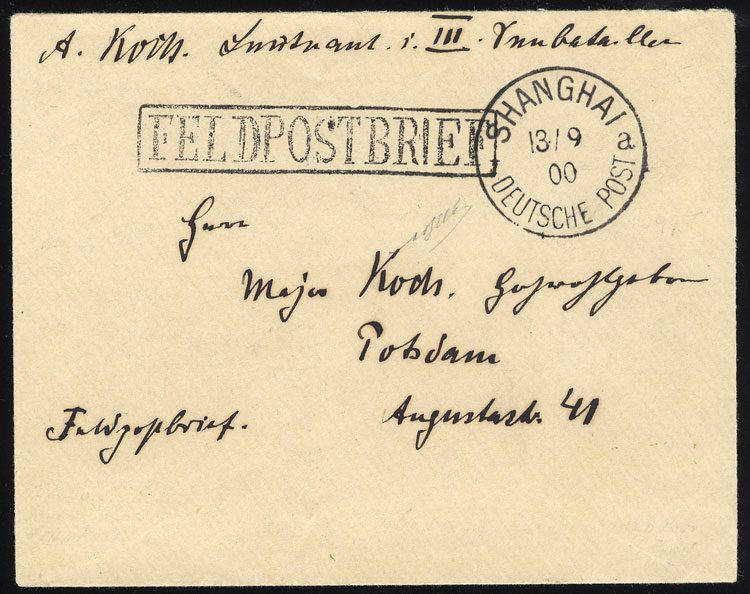 A. Koch. Leutnant. i. III. Seebataillon
FELDPOSTBRIEF
SHANGHAI a
13/9
00
DEUTSCHE POST
Herrn
Major Koch. Hochwohlgeboren
Potsdam
Feldpostbrief.
Augustastr. 41